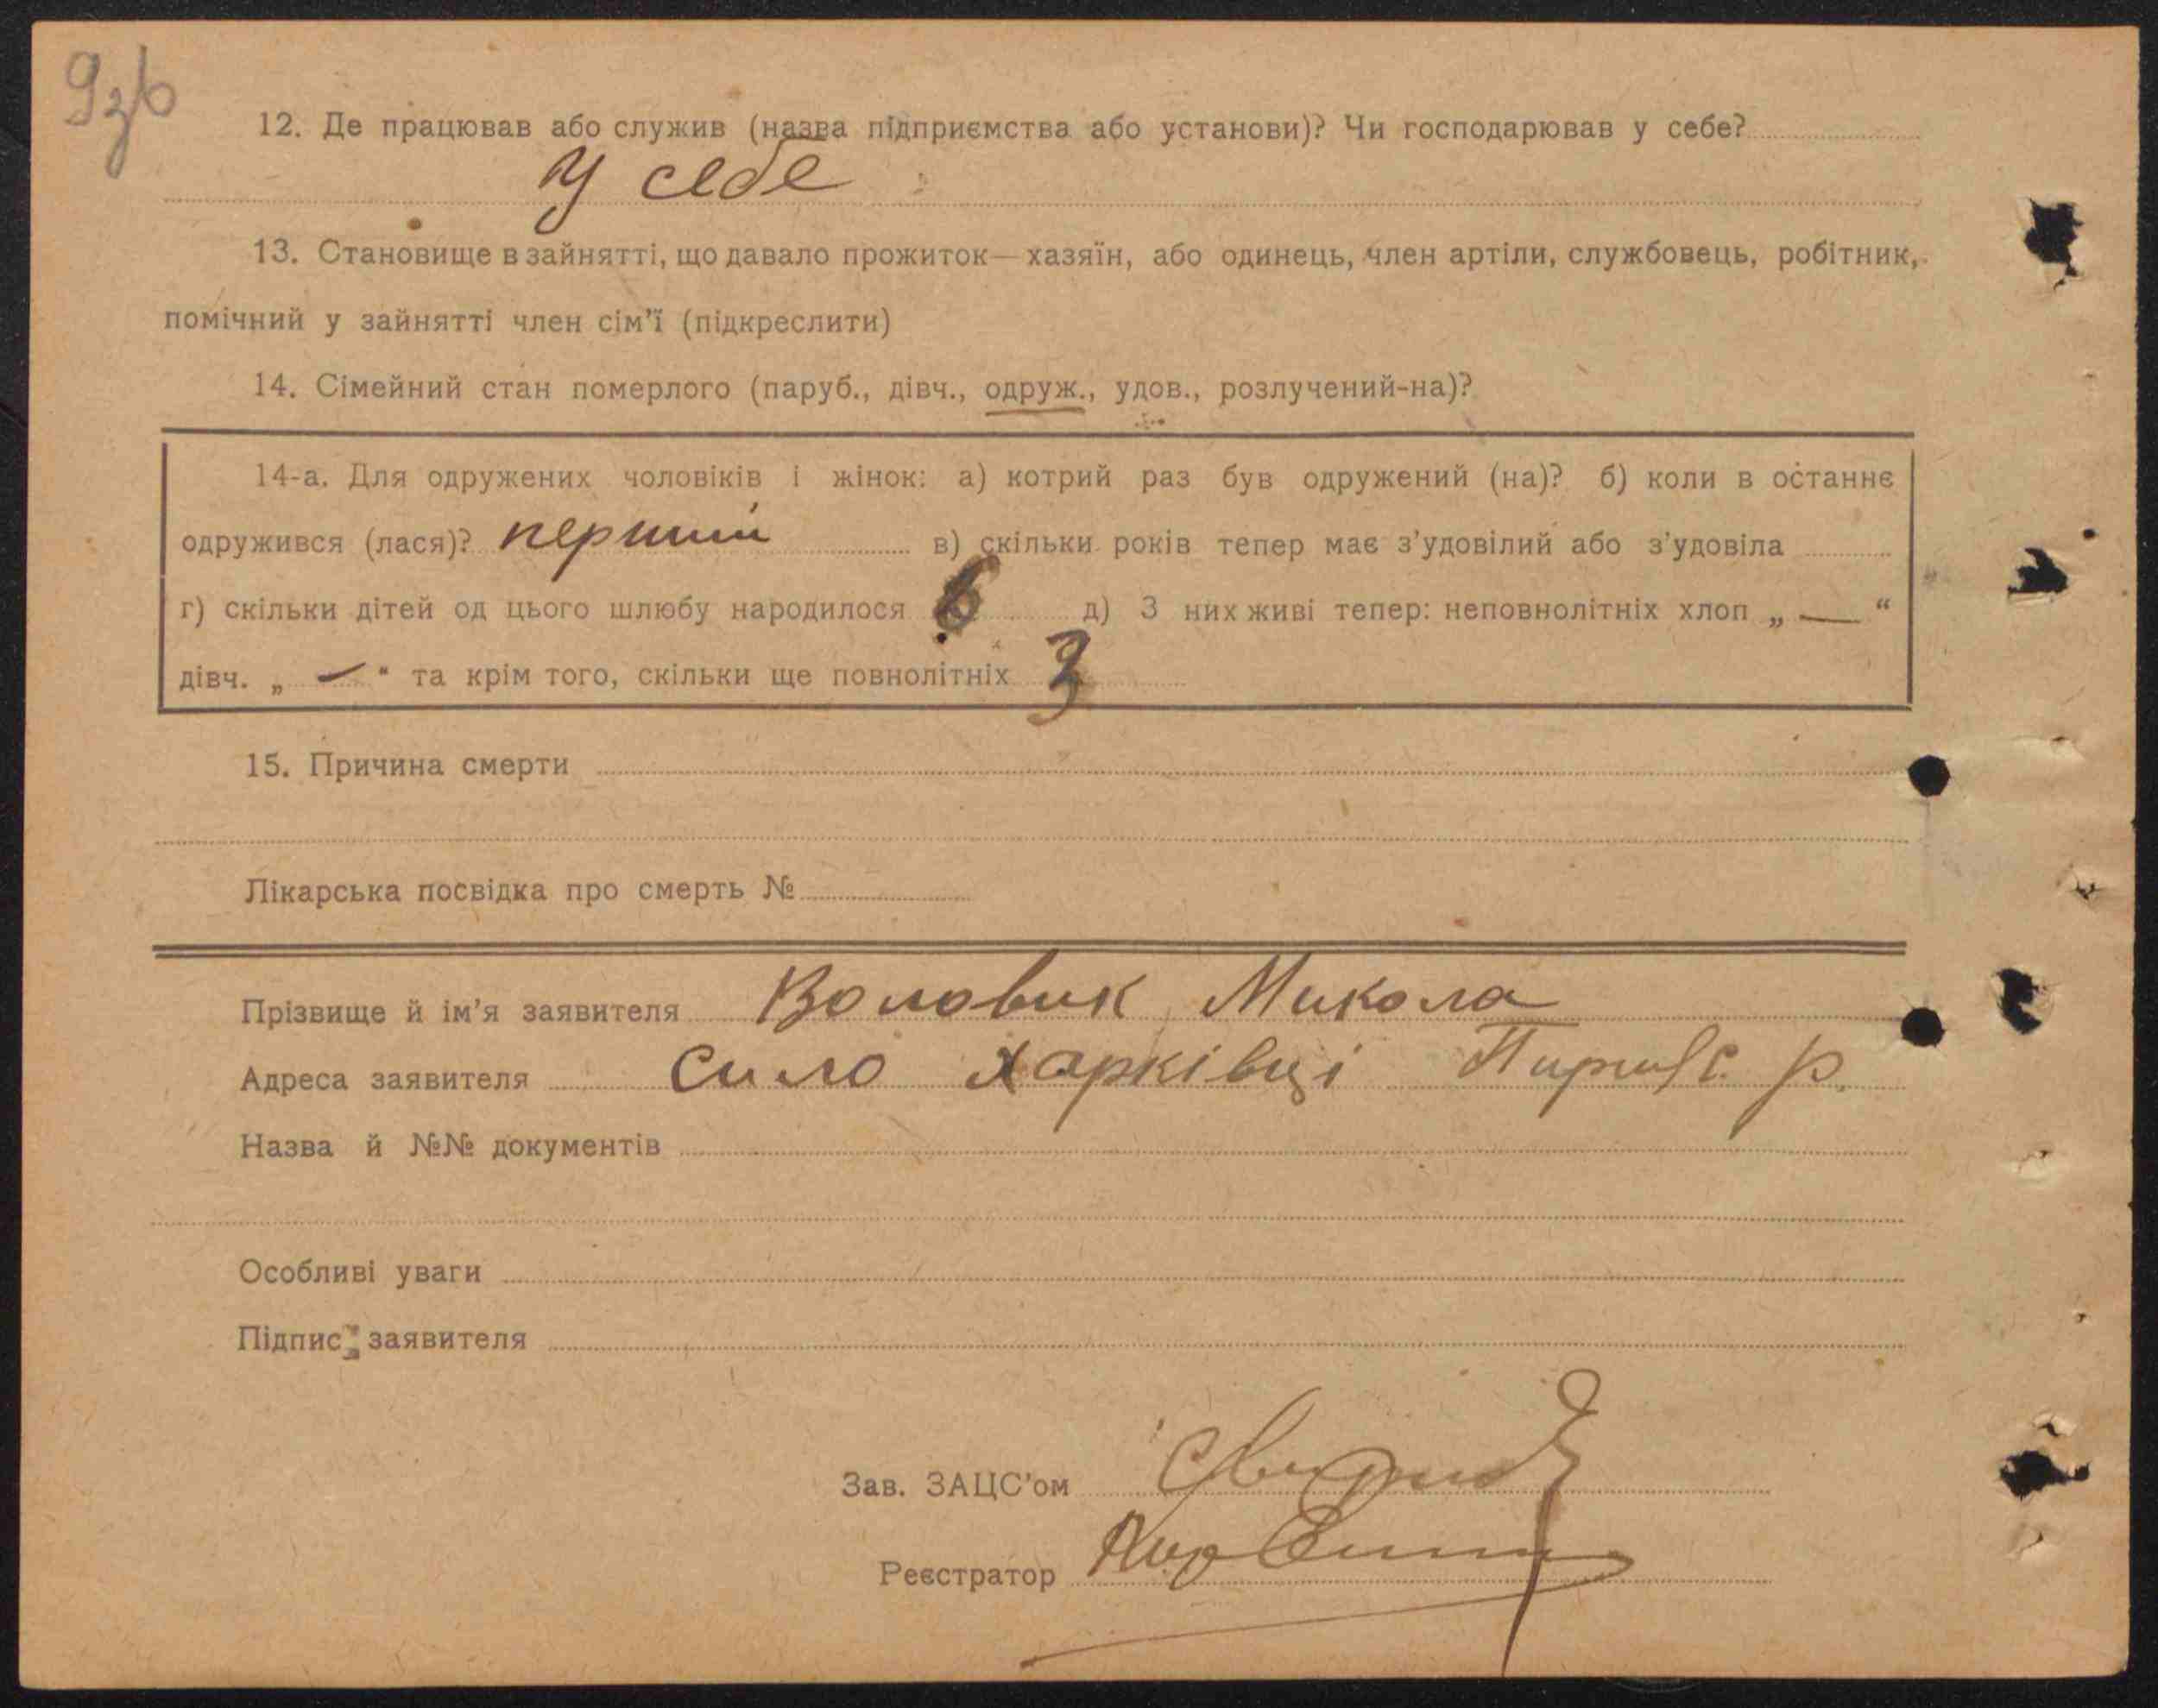 9зв
12. Де працював або служив (назва підприємства або установи)? Чи господарював у себе?
У себе
13. Становище в зайнятті, що давало прожиток — хазяїн, або одинець, член артіли, службовець, робітник,
помічний у зайнятті член сім'ї (підкреслити)
14. Сімейний стан померлого (паруб., дівч., одруж., удов., розлучений-на)?
14-а. Для одружених чоловіків і жінок: а) котрий раз був одружений (на)? б) коли в останнє
одружився (лася)? перший в) скільки років тепер має з'удовілий або з'удовіла
г) скільки дітей од цього шлюбу народилося 6 д) З них живі тепер: неповнолітніх хлоп „ — “
дівч. „ — “ та крім того, скільки ще повнолітніх 3
15. Причина смерти
Лікарська посвідка про смерть №
Прізвище й ім'я заявителя Воловик Микола
Адреса заявителя Сило Харківці р.
Назва й №№ документів
Особливі уваги
Підпис заявителя
Зав. ЗАЦС'ом
Реєстратор